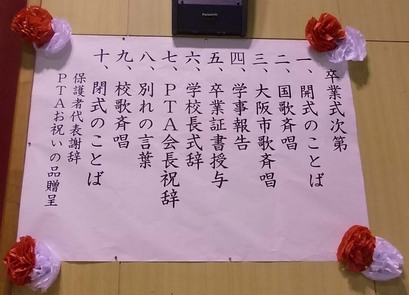 Panasonic
卒業式次第
一、開式のことば
二、国歌斉唱
三、大阪市歌斉唱
四、学事報告
五、卒業証書授与
六、学校長式辞
七、PTA会長祝辞
八、別れの言葉
九、校歌斉唱
十、閉式のことば
保護者代表謝辞
PTAお祝いの品贈呈